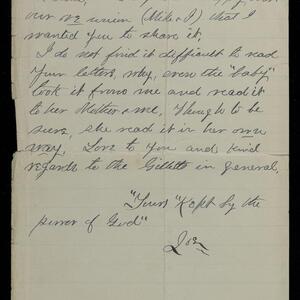 our re union (Mike & I) that I
wanted you to share it.
I do not find it difficult to read
your letters, why, even the "baby"
took it from me and read it
to her Mother & me, Though to be
sure, she read it in her own
way. Love to you and kind
regards to the Gilletts in general,
"Yours "Kept by the
power of God"